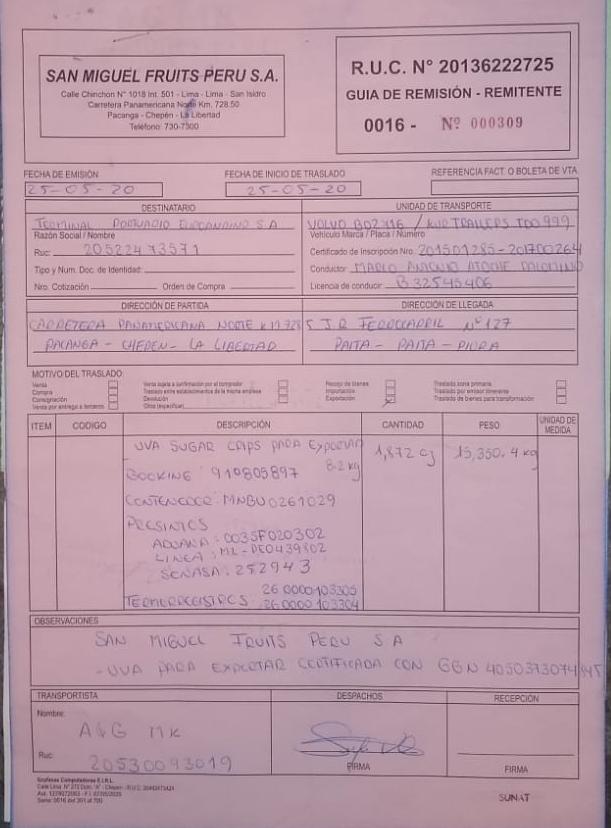 SAN MIGUEL FRUITS PERU S.A.
Calle Chinchon N° 1018 Int. 501 - Lima - Lima - San Isidro
Carretera Panamericana Norte Km. 728.50
Pacanga - Chepén - La Libertad
Teléfono: 730-7300
R.U.C. N° 20136222725
GUIA DE REMISIÓN - REMITENTE
0016 - Nº 000309
FECHA DE EMISIÓN
25-05-20
FECHA DE INICIO DE TRASLADO
25-05-20
REFERENCIA FACT. O BOLETA DE VTA.
DESTINATARIO
TERMINAL PORTUARIO EUROANDINO S.A
Razón Social / Nombre
Ruc: 20522473571
Tipo y Num. Doc. de Identidad:
Nro. Cotización Orden de Compra
UNIDAD DE TRANSPORTE
VOLVO / TRAILERS
Vehículo Marca / Placa / Número
Certificado de Inscripción Nro. 201501285-201700264
Conductor MARCO ANTONIO PALOMINO
Licencia de conducir B32545406
DIRECCIÓN DE PARTIDA
CARRETERA PANAMERICANA NORTE KM 728.5
PACANGA - CHEPEN - LA LIBERTAD
DIRECCIÓN DE LLEGADA
J.R FERROCARRIL Nº 127
PAITA - PAITA - PIURA
MOTIVO DEL TRASLADO:
Venta
Compra
Consignación
Venta por entrega a terceros
Venta sujeta a confirmación por el comprador
Traslado entre establecimientos de la misma empresa
Devolución
Otros (especificar)
Recojo de bienes
Importación
Exportación
Traslado zona primaria
Traslado por emisor itinerante
Traslado de bienes para transformación
ITEM CODIGO DESCRIPCIÓN CANTIDAD PESO UNIDAD DE MEDIDA
UVA SUGAR CRIPS PARA EXPORTAR 1,872 cj 15,350.4 kg
8.2 kg
BOOKING: 910805897
CONTENEDOR: MNBU0261029
PRECSINTOS
ADUANA: 0035F020302
LINEA: ML-PE0439802
SENASA: 252943
TERMOREGISTROS 26 0000 103305
26 0000 103304
OBSERVACIONES
SAN MIGUEL FRUITS PERU S A
- UVA PARA EXPORTAR CERTIFICADA CON GGN
TRANSPORTISTA
Nombre:
A&G MK
Ruc: 20530093019
DESPACHOS
FIRMA
RECEPCIÓN
FIRMA
Grafenas Computadoras E.I.R.L.
Serie: 0016 del 301 al 700
SUNAT